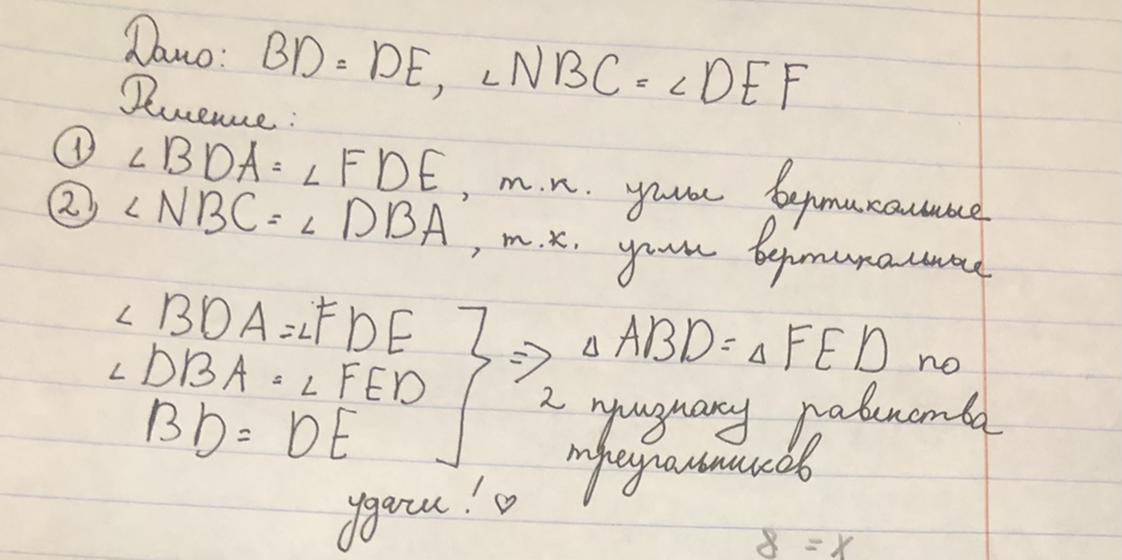 Дано: BD = DE, ∠NBC = ∠DEF
Решение:
① ∠BDA = ∠FDE, т.к. углы вертикальные
② ∠NBC = ∠DBA, т.к. углы вертикальные
∠BDA = ∠FDE
∠DBA = ∠FED
BD = DE
} => △ABD = △FED по
2 признаку равенства
треугольников
удачи! ♡
8 = x